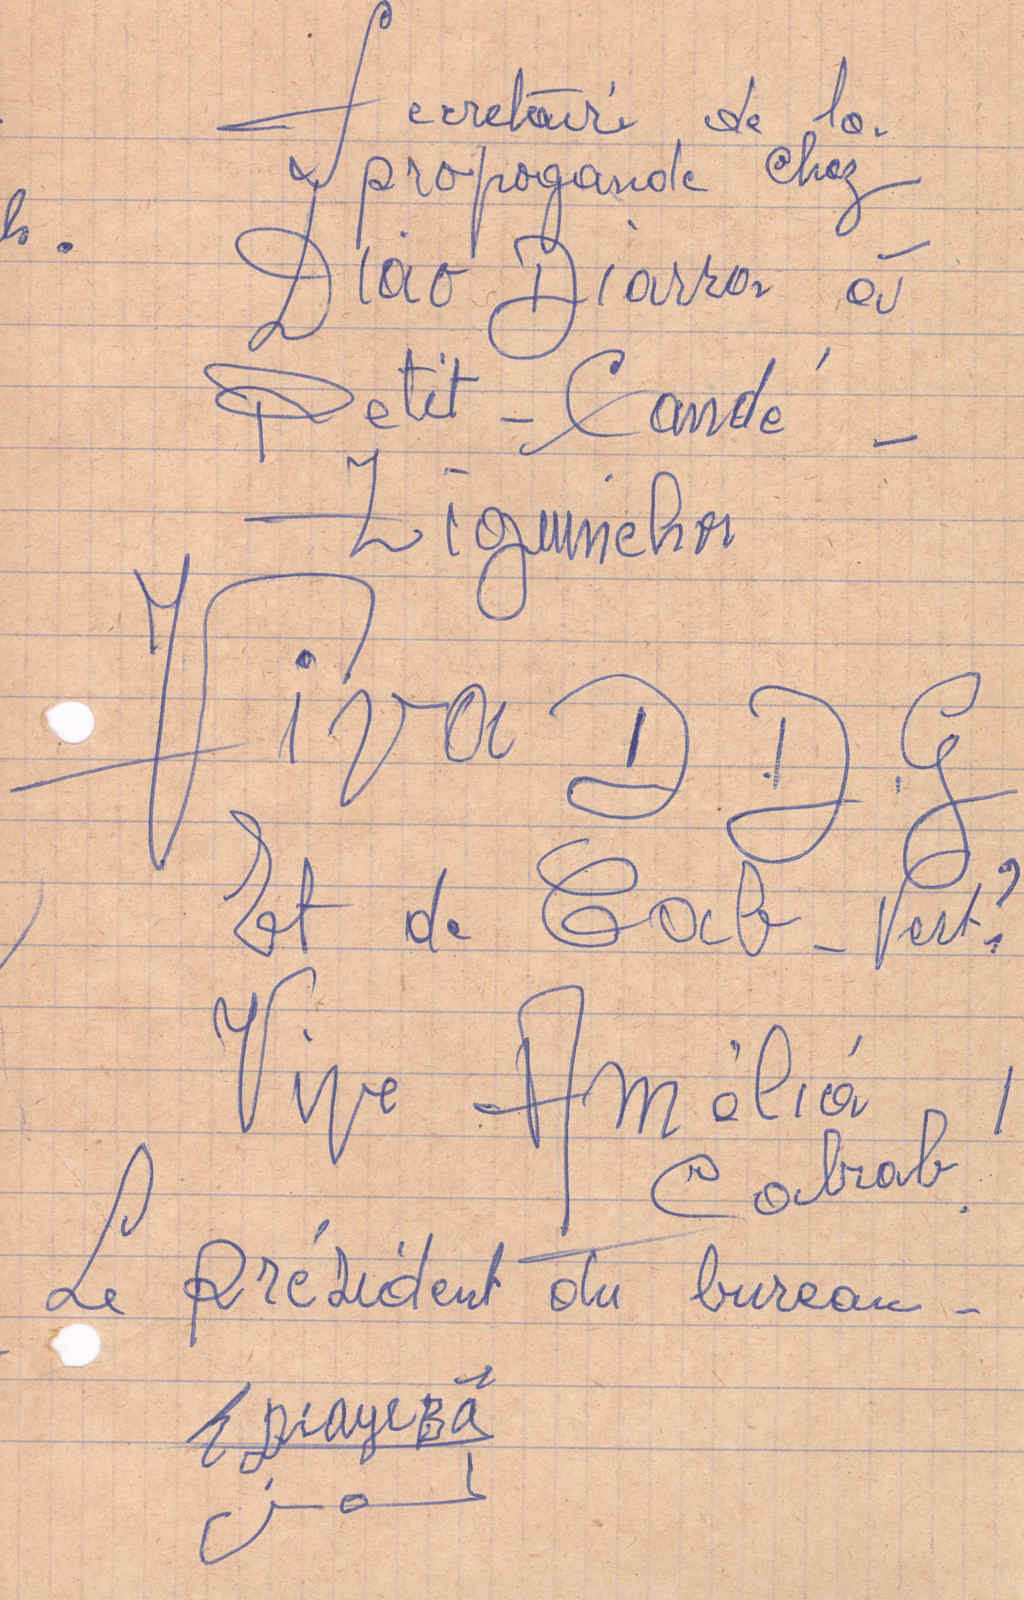 Secretairé de la
propogande chez
Diao Diarra à
Petit - Candé -
Ziguinchor
Viva D D.G
Et de Cab - Vert?
Vive Amélia !
Cabrab.
Le président du bureau -